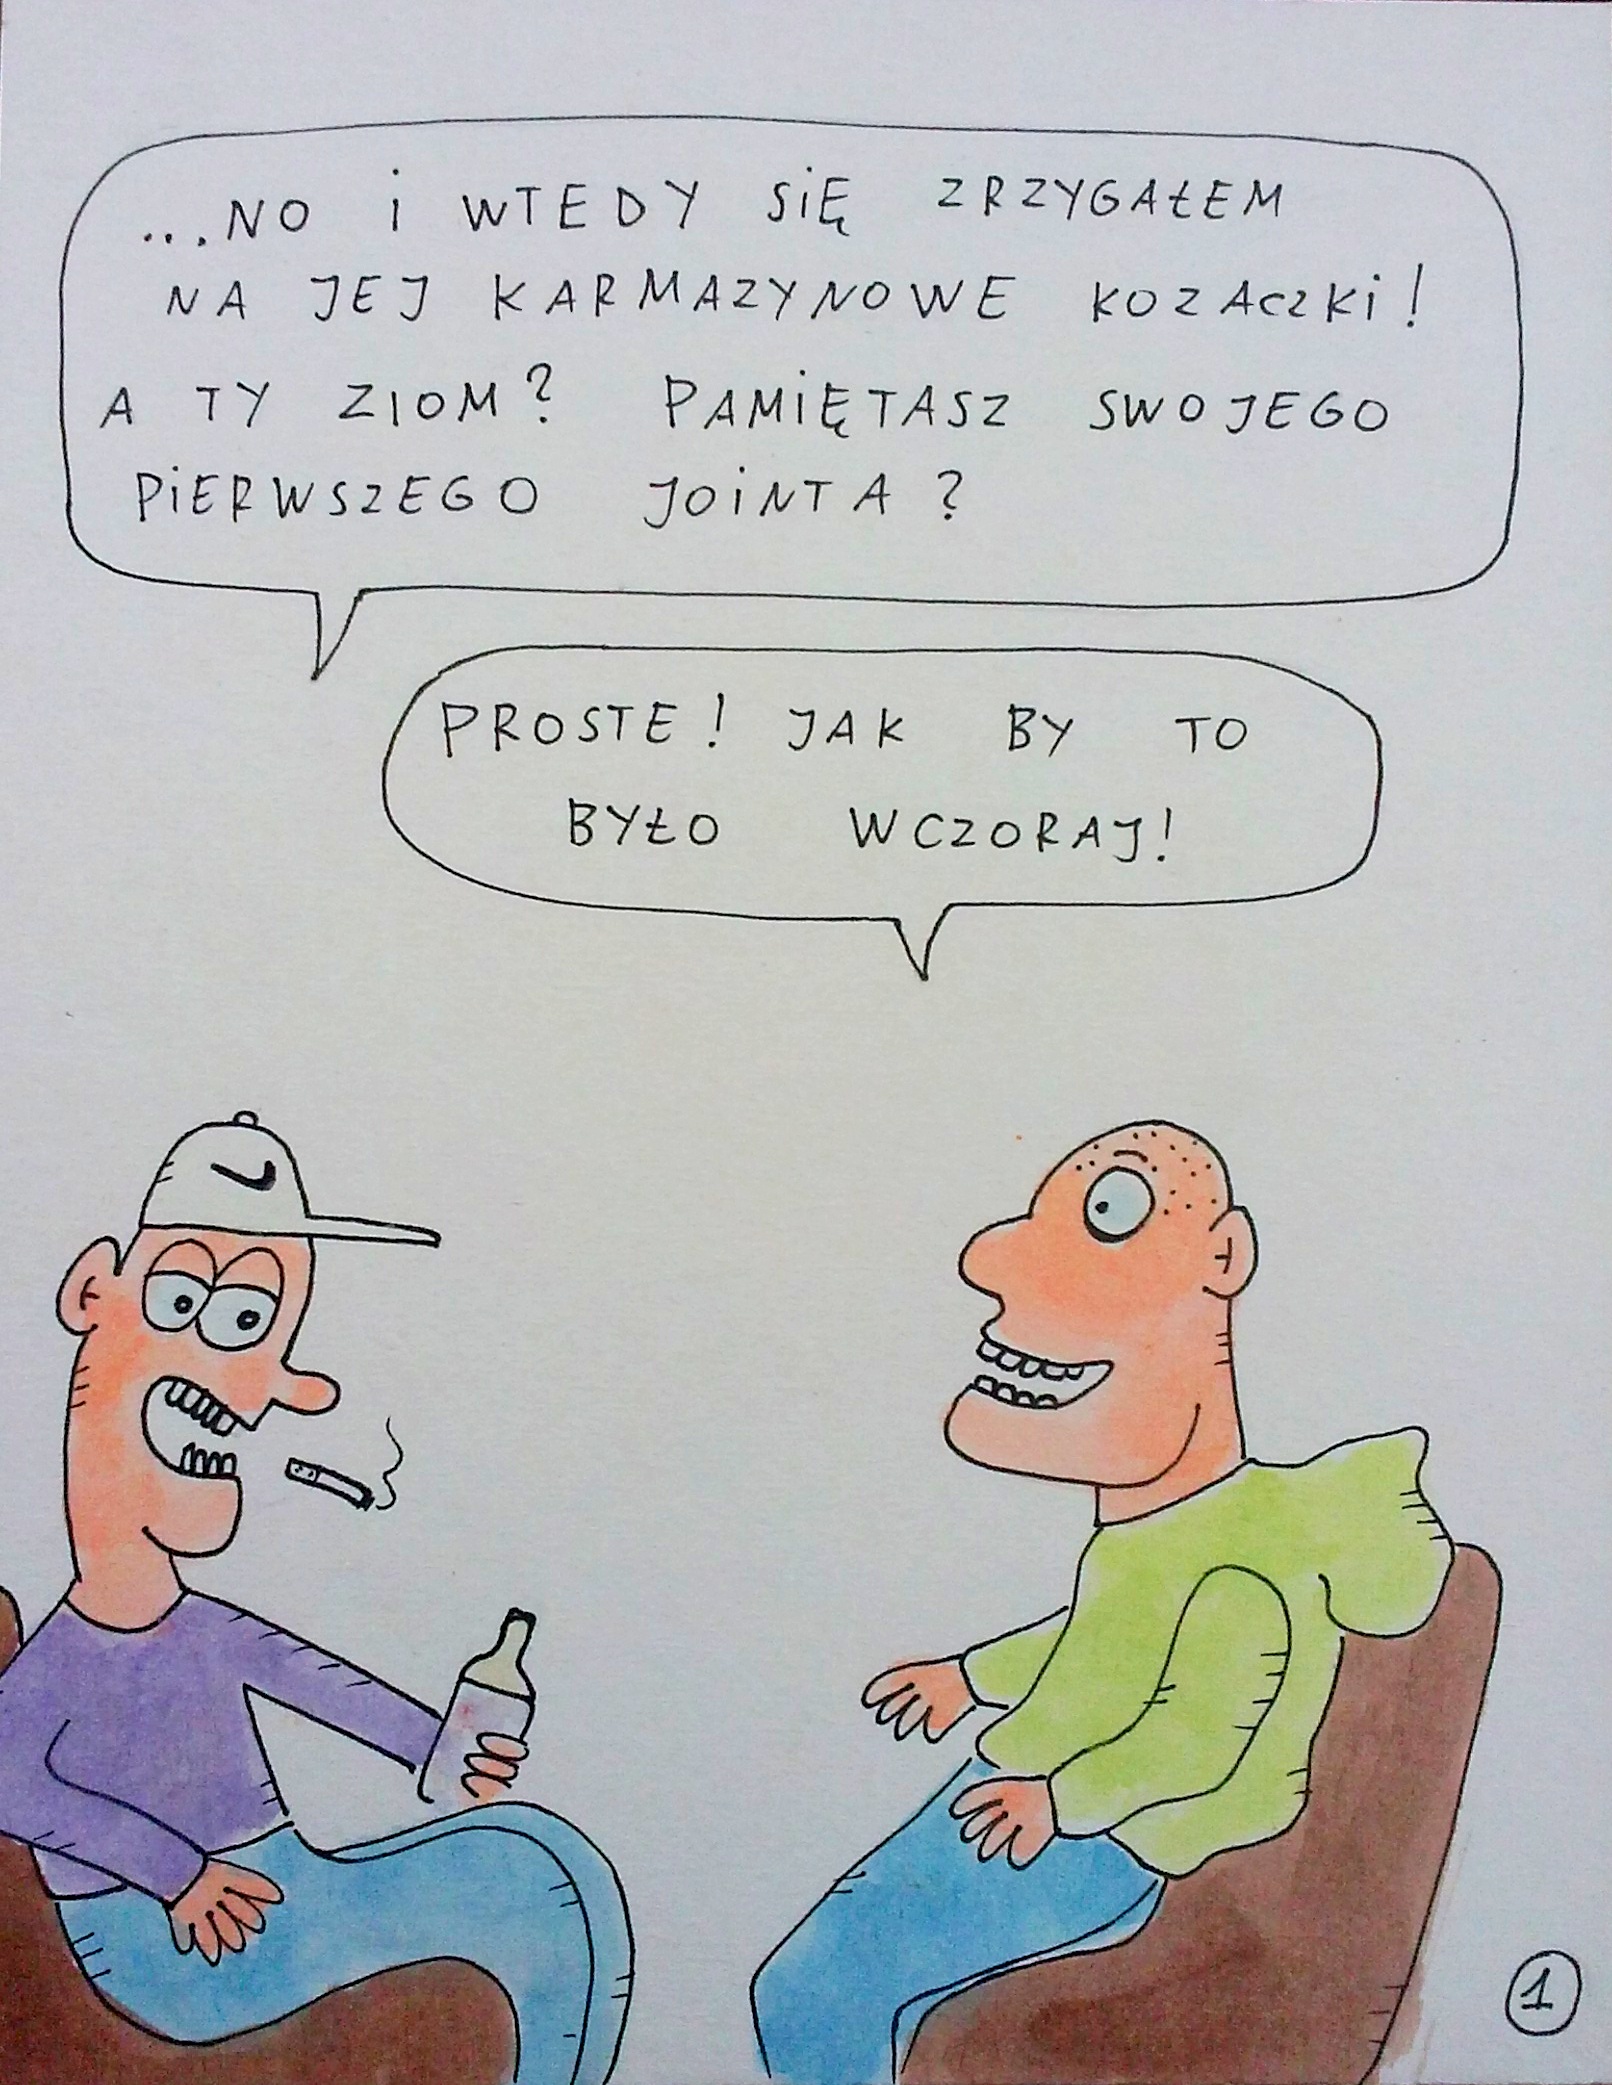 ...NO I WTEDY SIĘ ZRZYGAŁEM
NA JEJ KARMAZYNOWE KOZACZKI!
A TY ZIOM? PAMIĘTASZ SWOJEGO
PIERWSZEGO JOINTA?
PROSTE! JAK BY TO
BYŁO WCZORAJ!
1